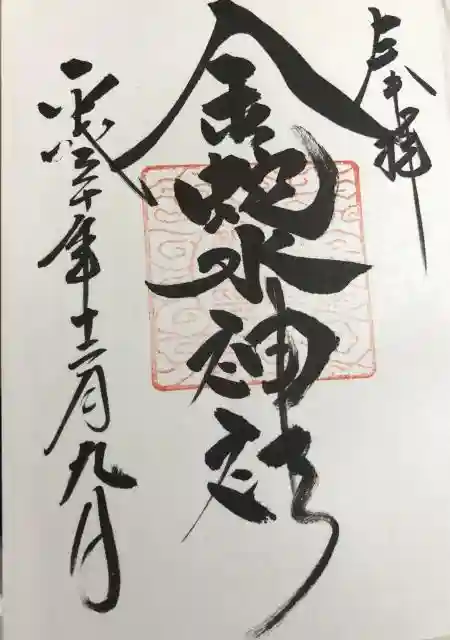 奉拝
金蛇水神社
平成三十年十二月九日